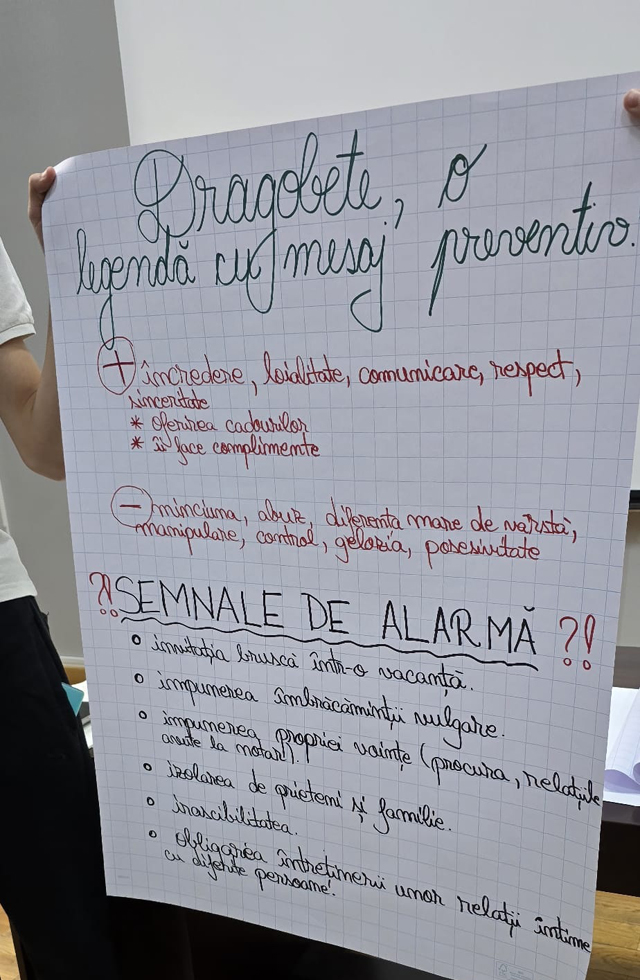 Dragobete, o
legendă cu mesaj preventiv.
+ încredere, loialitate, comunicare, respect,
sinceritate
* oferirea cadourilor
* îi face complimente
- minciuna, abuz, diferența mare de vârstă,
manipulare, control, gelozia, posesivitate
?! SEMNALE DE ALARMĂ ?!
o invitația bruscă într-o vacanță.
o impunerea îmbrăcăminții vulgare.
o impunerea propriei voințe (procura, relațiile
avute la notar!).
o izolarea de prieteni și familie.
o irascibilitatea.
o obligarea întreținerii unor relații intime
cu diferite persoane!